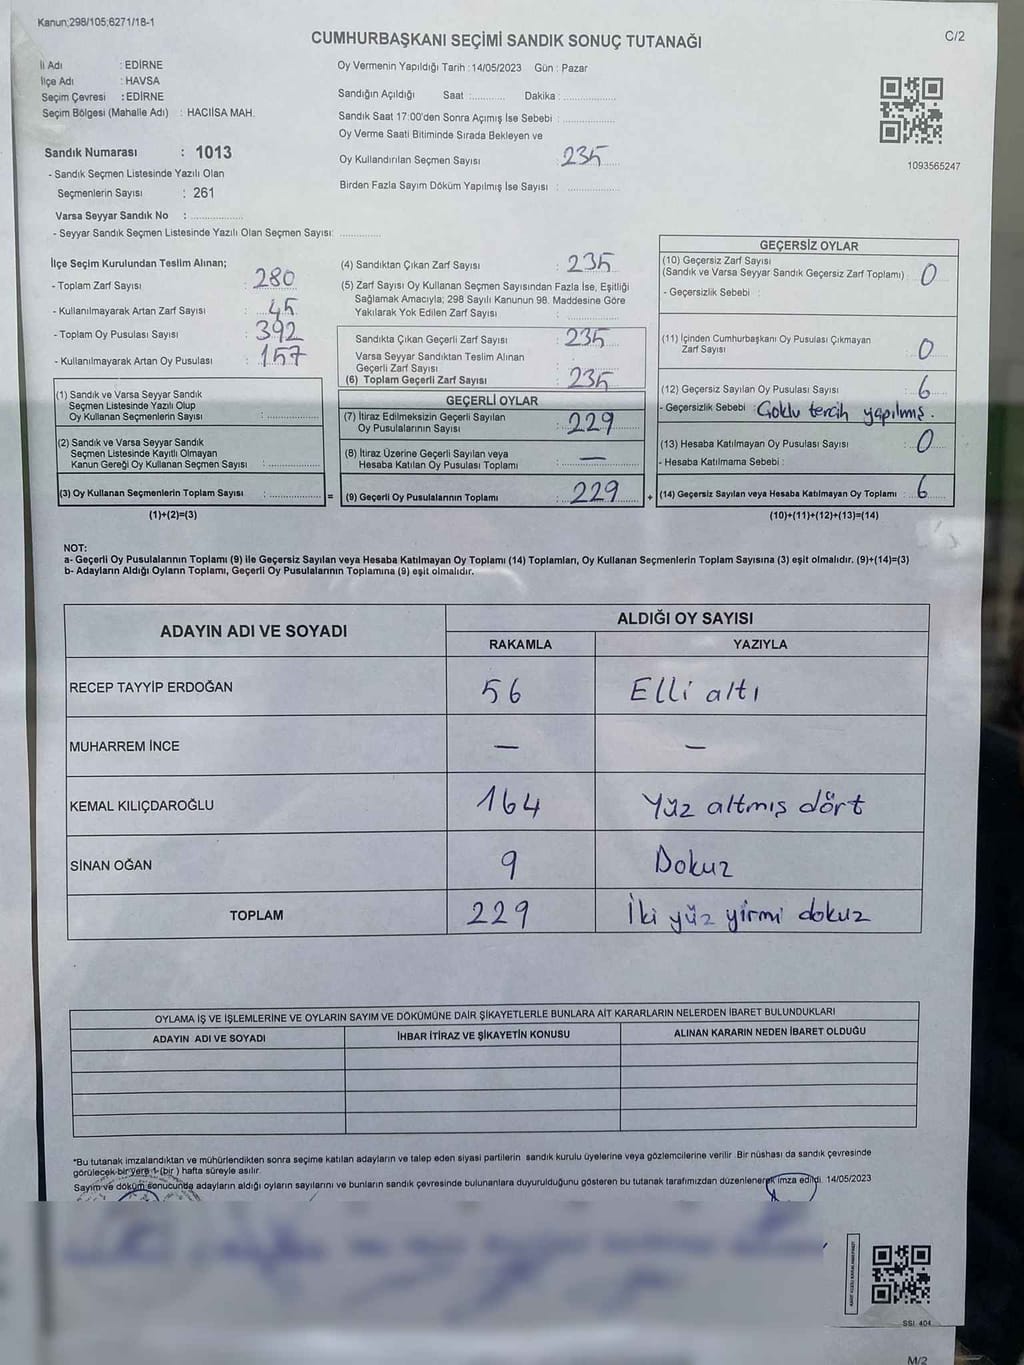 Kanun;298/105;6271/18-1
C/2
CUMHURBAŞKANI SEÇİMİ SANDIK SONUÇ TUTANAĞI
İl Adı : EDİRNE
İlçe Adı : HAVSA
Seçim Çevresi : EDİRNE
Seçim Bölgesi (Mahalle Adı) : HACIİSA MAH.
Sandık Numarası : 1013
- Sandık Seçmen Listesinde Yazılı Olan
Seçmenlerin Sayısı : 261
Varsa Seyyar Sandık No : ..................
- Seyyar Sandık Seçmen Listesinde Yazılı Olan Seçmen Sayısı: ..............
Oy Vermenin Yapıldığı Tarih : 14/05/2023 Gün : Pazar
Sandığın Açıldığı Saat :............ Dakika :..................
Sandık Saat 17:00'den Sonra Açımış İse Sebebi : ..................
Oy Verme Saati Bitiminde Sırada Bekleyen ve
Oy Kullandırılan Seçmen Sayısı : 235
Birden Fazla Sayım Döküm Yapılmış İse Sayısı : ..................
1093565247
İlçe Seçim Kurulundan Teslim Alınan;
- Toplam Zarf Sayısı : 280
- Kullanılmayarak Artan Zarf Sayısı : 45
- Toplam Oy Pusulası Sayısı : 392
- Kullanılmayarak Artan Oy Pusulası : 157
(1) Sandık ve Varsa Seyyar Sandık
Seçmen Listesinde Yazılı Olup
Oy Kullanan Seçmenlerin Sayısı : ..................
(2) Sandık ve Varsa Seyyar Sandık
Seçmen Listesinde Kayıtlı Olmayan
Kanun Gereği Oy Kullanan Seçmen Sayısı : ..................
(3) Oy Kullanan Seçmenlerin Toplam Sayısı : .................. =
(1)+(2)=(3)
(4) Sandıktan Çıkan Zarf Sayısı : 235
(5) Zarf Sayısı Oy Kullanan Seçmen Sayısından Fazla İse, Eşitliği
Sağlamak Amacıyla; 298 Sayılı Kanunun 98. Maddesine Göre
Yakılarak Yok Edilen Zarf Sayısı : ..................
Sandıkta Çıkan Geçerli Zarf Sayısı : 235
Varsa Seyyar Sandıktan Teslim Alınan
Geçerli Zarf Sayısı :
(6) Toplam Geçerli Zarf Sayısı : 235
GEÇERLİ OYLAR
(7) İtiraz Edilmeksizin Geçerli Sayılan
Oy Pusulalarının Sayısı : 229
(8) İtiraz Üzerine Geçerli Sayılan veya
Hesaba Katılan Oy Pusulası Toplamı : —
(9) Geçerli Oy Pusulalarının Toplamı : 229 +
GEÇERSİZ OYLAR
(10) Geçersiz Zarf Sayısı
(Sandık ve Varsa Seyyar Sandık Geçersiz Zarf Toplamı) : 0
- Geçersizlik Sebebi :
(11) İçinden Cumhurbaşkanı Oy Pusulası Çıkmayan
Zarf Sayısı : 0
(12) Geçersiz Sayılan Oy Pusulası Sayısı : 6
- Geçersizlik Sebebi : Çoklu tercih yapılmış.
(13) Hesaba Katılmayan Oy Pusulası Sayısı : 0
- Hesaba Katılmama Sebebi :
(14) Geçersiz Sayılan veya Hesaba Katılmayan Oy Toplamı : 6
(10)+(11)+(12)+(13)=(14)
NOT:
a- Geçerli Oy Pusulalarının Toplamı (9) ile Geçersiz Sayılan veya Hesaba Katılmayan Oy Toplamı (14) Toplamları, Oy Kullanan Seçmenlerin Toplam Sayısına (3) eşit olmalıdır. (9)+(14)=(3)
b- Adayların Aldığı Oyların Toplamı, Geçerli Oy Pusulalarının Toplamına (9) eşit olmalıdır.
ADAYIN ADI VE SOYADI
ALDIĞI OY SAYISI
RAKAMLA YAZIYLA
RECEP TAYYİP ERDOĞAN 56 Elli altı
MUHARREM İNCE — —
KEMAL KILIÇDAROĞLU 164 Yüz altmış dört
SİNAN OĞAN 9 Dokuz
TOPLAM 229 İki yüz yirmi dokuz
OYLAMA İŞ VE İŞLEMLERİNE VE OYLARIN SAYIM VE DÖKÜMÜNE DAİR ŞİKAYETLERLE BUNLARA AİT KARARLARIN NELERDEN İBARET BULUNDUKLARI
ADAYIN ADI VE SOYADI İHBAR İTİRAZ VE ŞİKAYETİN KONUSU ALINAN KARARIN NEDEN İBARET OLDUĞU
*Bu tutanak imzalandıktan ve mühürlendikten sonra seçime katılan adayların ve talep eden siyasi partilerin sandık kurulu üyelerine veya gözlemcilerine verilir. Bir nüshası da sandık çevresinde
görülecek bir yere 1 (bir) hafta süreyle asılır.
Sayım ve döküm sonucunda adayların aldığı oyların sayılarını ve bunların sandık çevresinde bulunanlara duyurulduğunu gösteren bu tutanak tarafımızdan düzenlenerek imza edildi. 14/05/2023
SSI 404
M/2